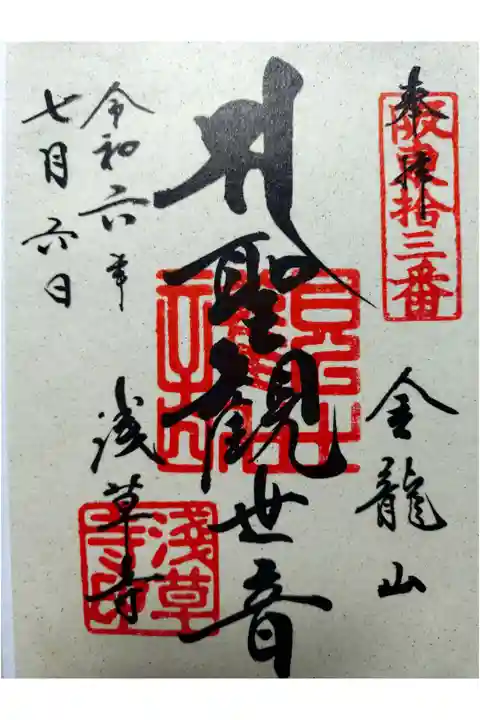 奉拝
阪東拾三番
金龍山
聖観世音
浅草寺
淺草寺印
令和六年
七月六日